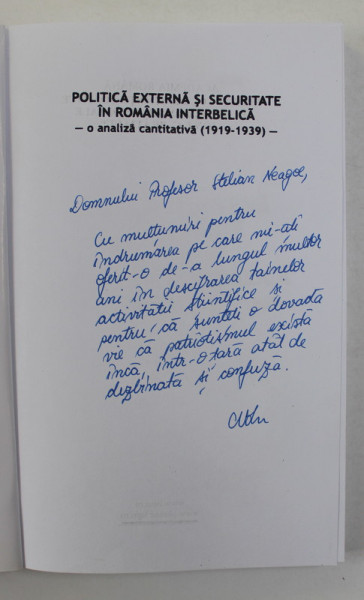 POLITICĂ EXTERNĂ ȘI SECURITATE
ÎN ROMÂNIA INTERBELICĂ
— o analiză cantitativă (1919-1939) —
Domnului Profesor Stelian Neagoe,
Cu mulțumiri pentru
îndrumarea pe care mi-ați
oferit-o de-a lungul multor
ani în descifrarea tainelor
activității științifice și
pentru că sunteți o dovadă
vie că patriotismul există
încă, într-o țară atât de
dezbinată și confuză.